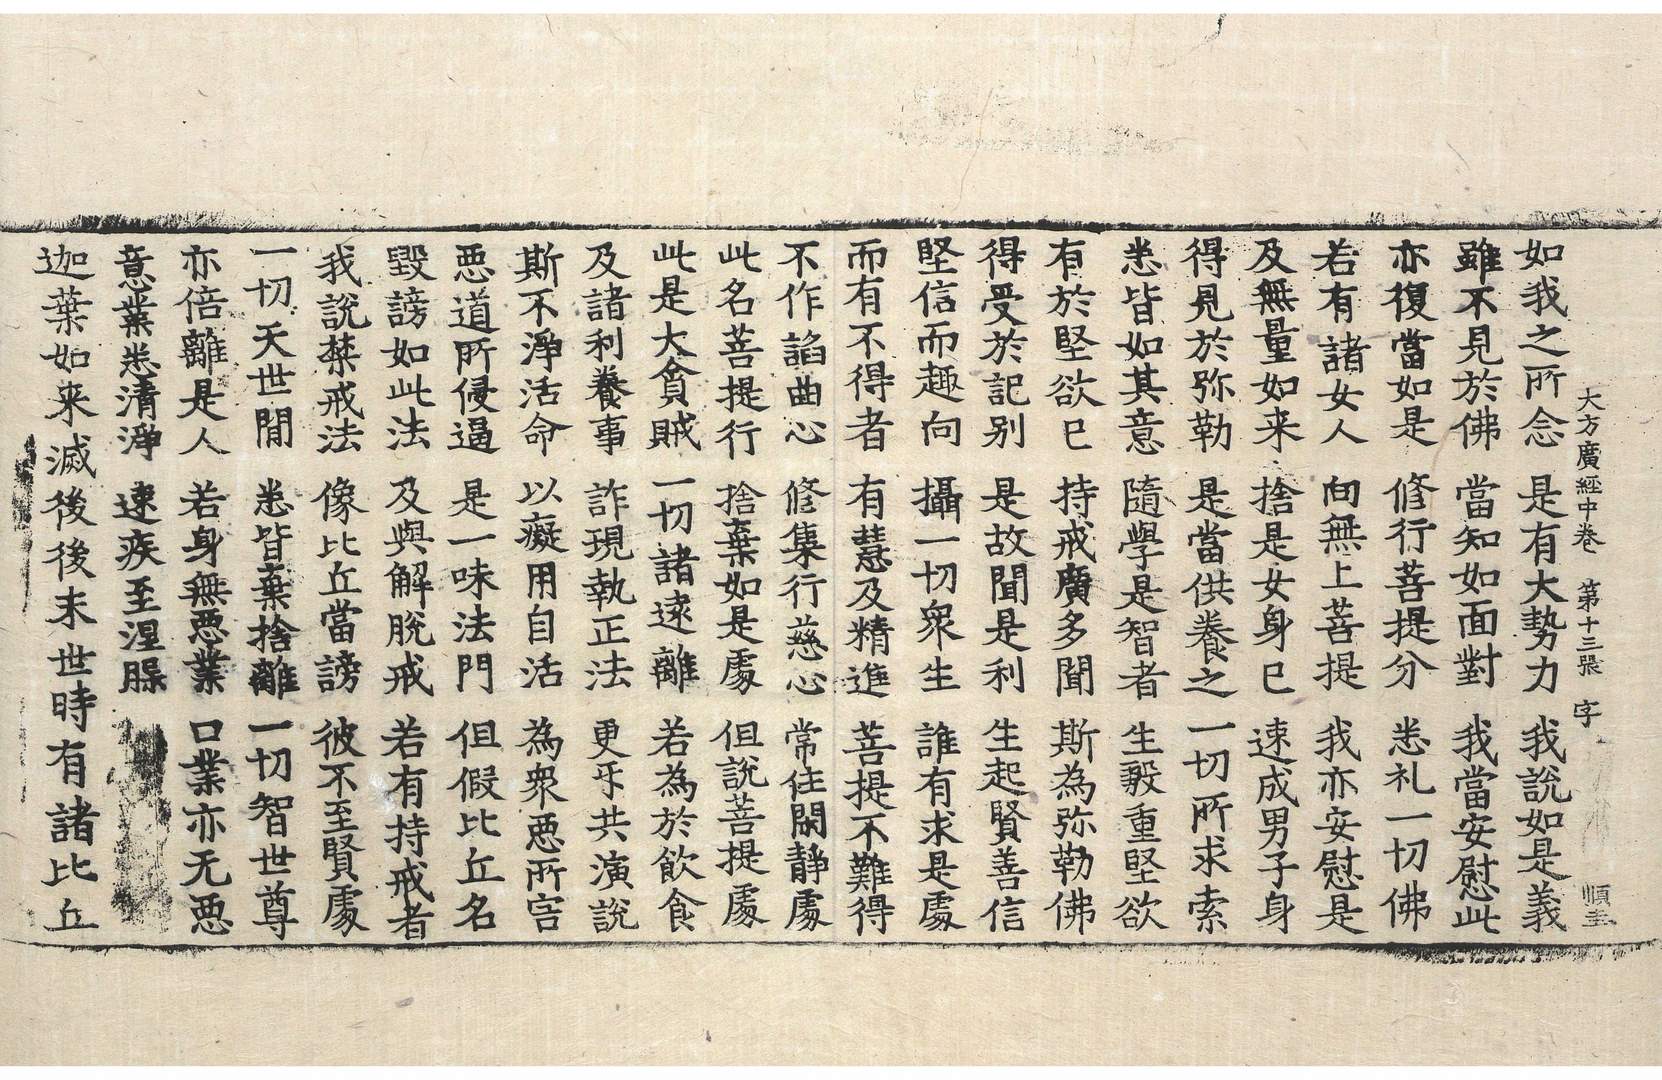 大方廣經中卷　第十三張　字　順圭
如我之所念　是有大勢力　我說如是義
雖不見於佛　當知如面對　我當安慰此
亦復當如是　修行菩提分　悉礼一切佛
若有諸女人　向無上菩提　我亦安慰是
及無量如来　捨是女身已　速成男子身
得見於弥勒　是當供養之　一切所求索
悉皆如其意　隨學是智者　生毅重堅欲
有於堅欲已　持戒廣多聞　斯為弥勒佛
得受於記别　是故聞是利　生起賢善信
堅信而趣向　攝一切衆生　誰有求是處
而有不得者　有慧及精進　菩提不難得
不作諂曲心　修集行慈心　常住閑靜處
此名菩提行　捨棄如是處　但說菩提處
此是大貪賊　一切諸遠離　若為於飲食
及諸利養事　詐現執正法　更㸦共演說
斯不淨活命　以癡用自活　為衆惡所害
惡道所侵逼　是一味法門　但假比丘名
毀謗如此法　及與解脫戒　若有持戒者
我說禁戒法　像比丘當謗　彼不至賢處
一切天世閒　悉皆棄捨離　一切智世尊
亦倍離是人　若身無惡業　口業亦无惡
意業悉清淨　速疾至涅槃
迦葉如来滅後後末世時有諸比丘